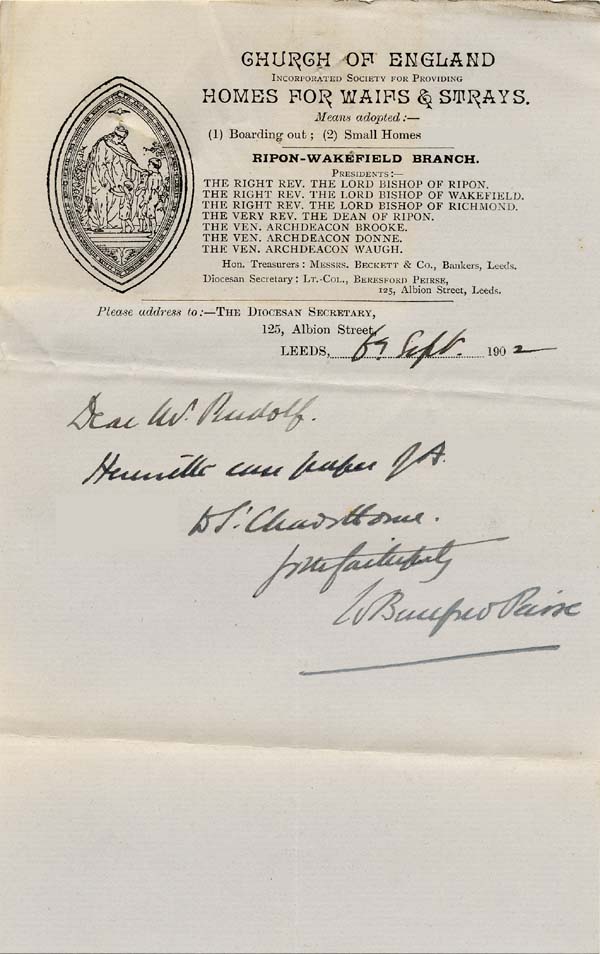 CHURCH OF ENGLAND
INCORPORATED SOCIETY FOR PROVIDING
HOMES FOR WAIFS & STRAYS.
Means adopted:—
(1) Boarding out; (2) Small Homes
RIPON-WAKEFIELD BRANCH.
PRESIDENTS:—
THE RIGHT REV. THE LORD BISHOP OF RIPON.
THE RIGHT REV. THE LORD BISHOP OF WAKEFIELD.
THE RIGHT REV. THE LORD BISHOP OF RICHMOND.
THE VERY REV. THE DEAN OF RIPON.
THE VEN. ARCHDEACON BROOKE.
THE VEN. ARCHDEACON DONNE.
THE VEN. ARCHDEACON WAUGH.
Hon. Treasurers: MESSRS. BECKETT & CO., Bankers, Leeds.
Diocesan Secretary: LT.-COL., BERESFORD PEIRSE,
125, Albion Street, Leeds.
Please address to:—THE DIOCESAN SECRETARY,
125, Albion Street,
LEEDS, Sept. 1902
Dear Mr. Rudolf.
Herewith case paper of A.
to St. Chad's Home.
faithfully
W Beresford Peirse